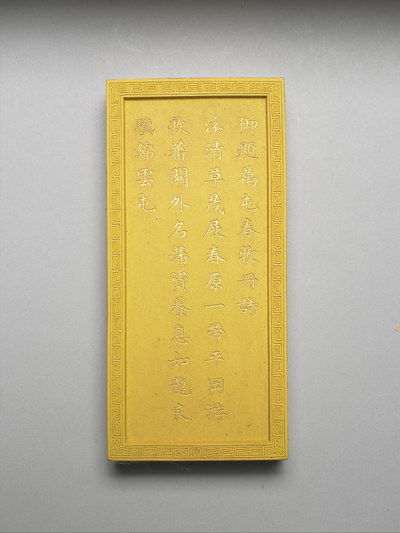 御題萬屯春牧冊詩
溪清草茂展春原一帶平岡游
牧蕃關外名藩資養息如龍良
驥錦雲屯